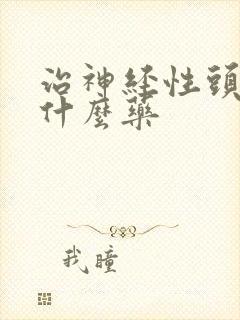 治神经性頭
什麼藥
我瞳